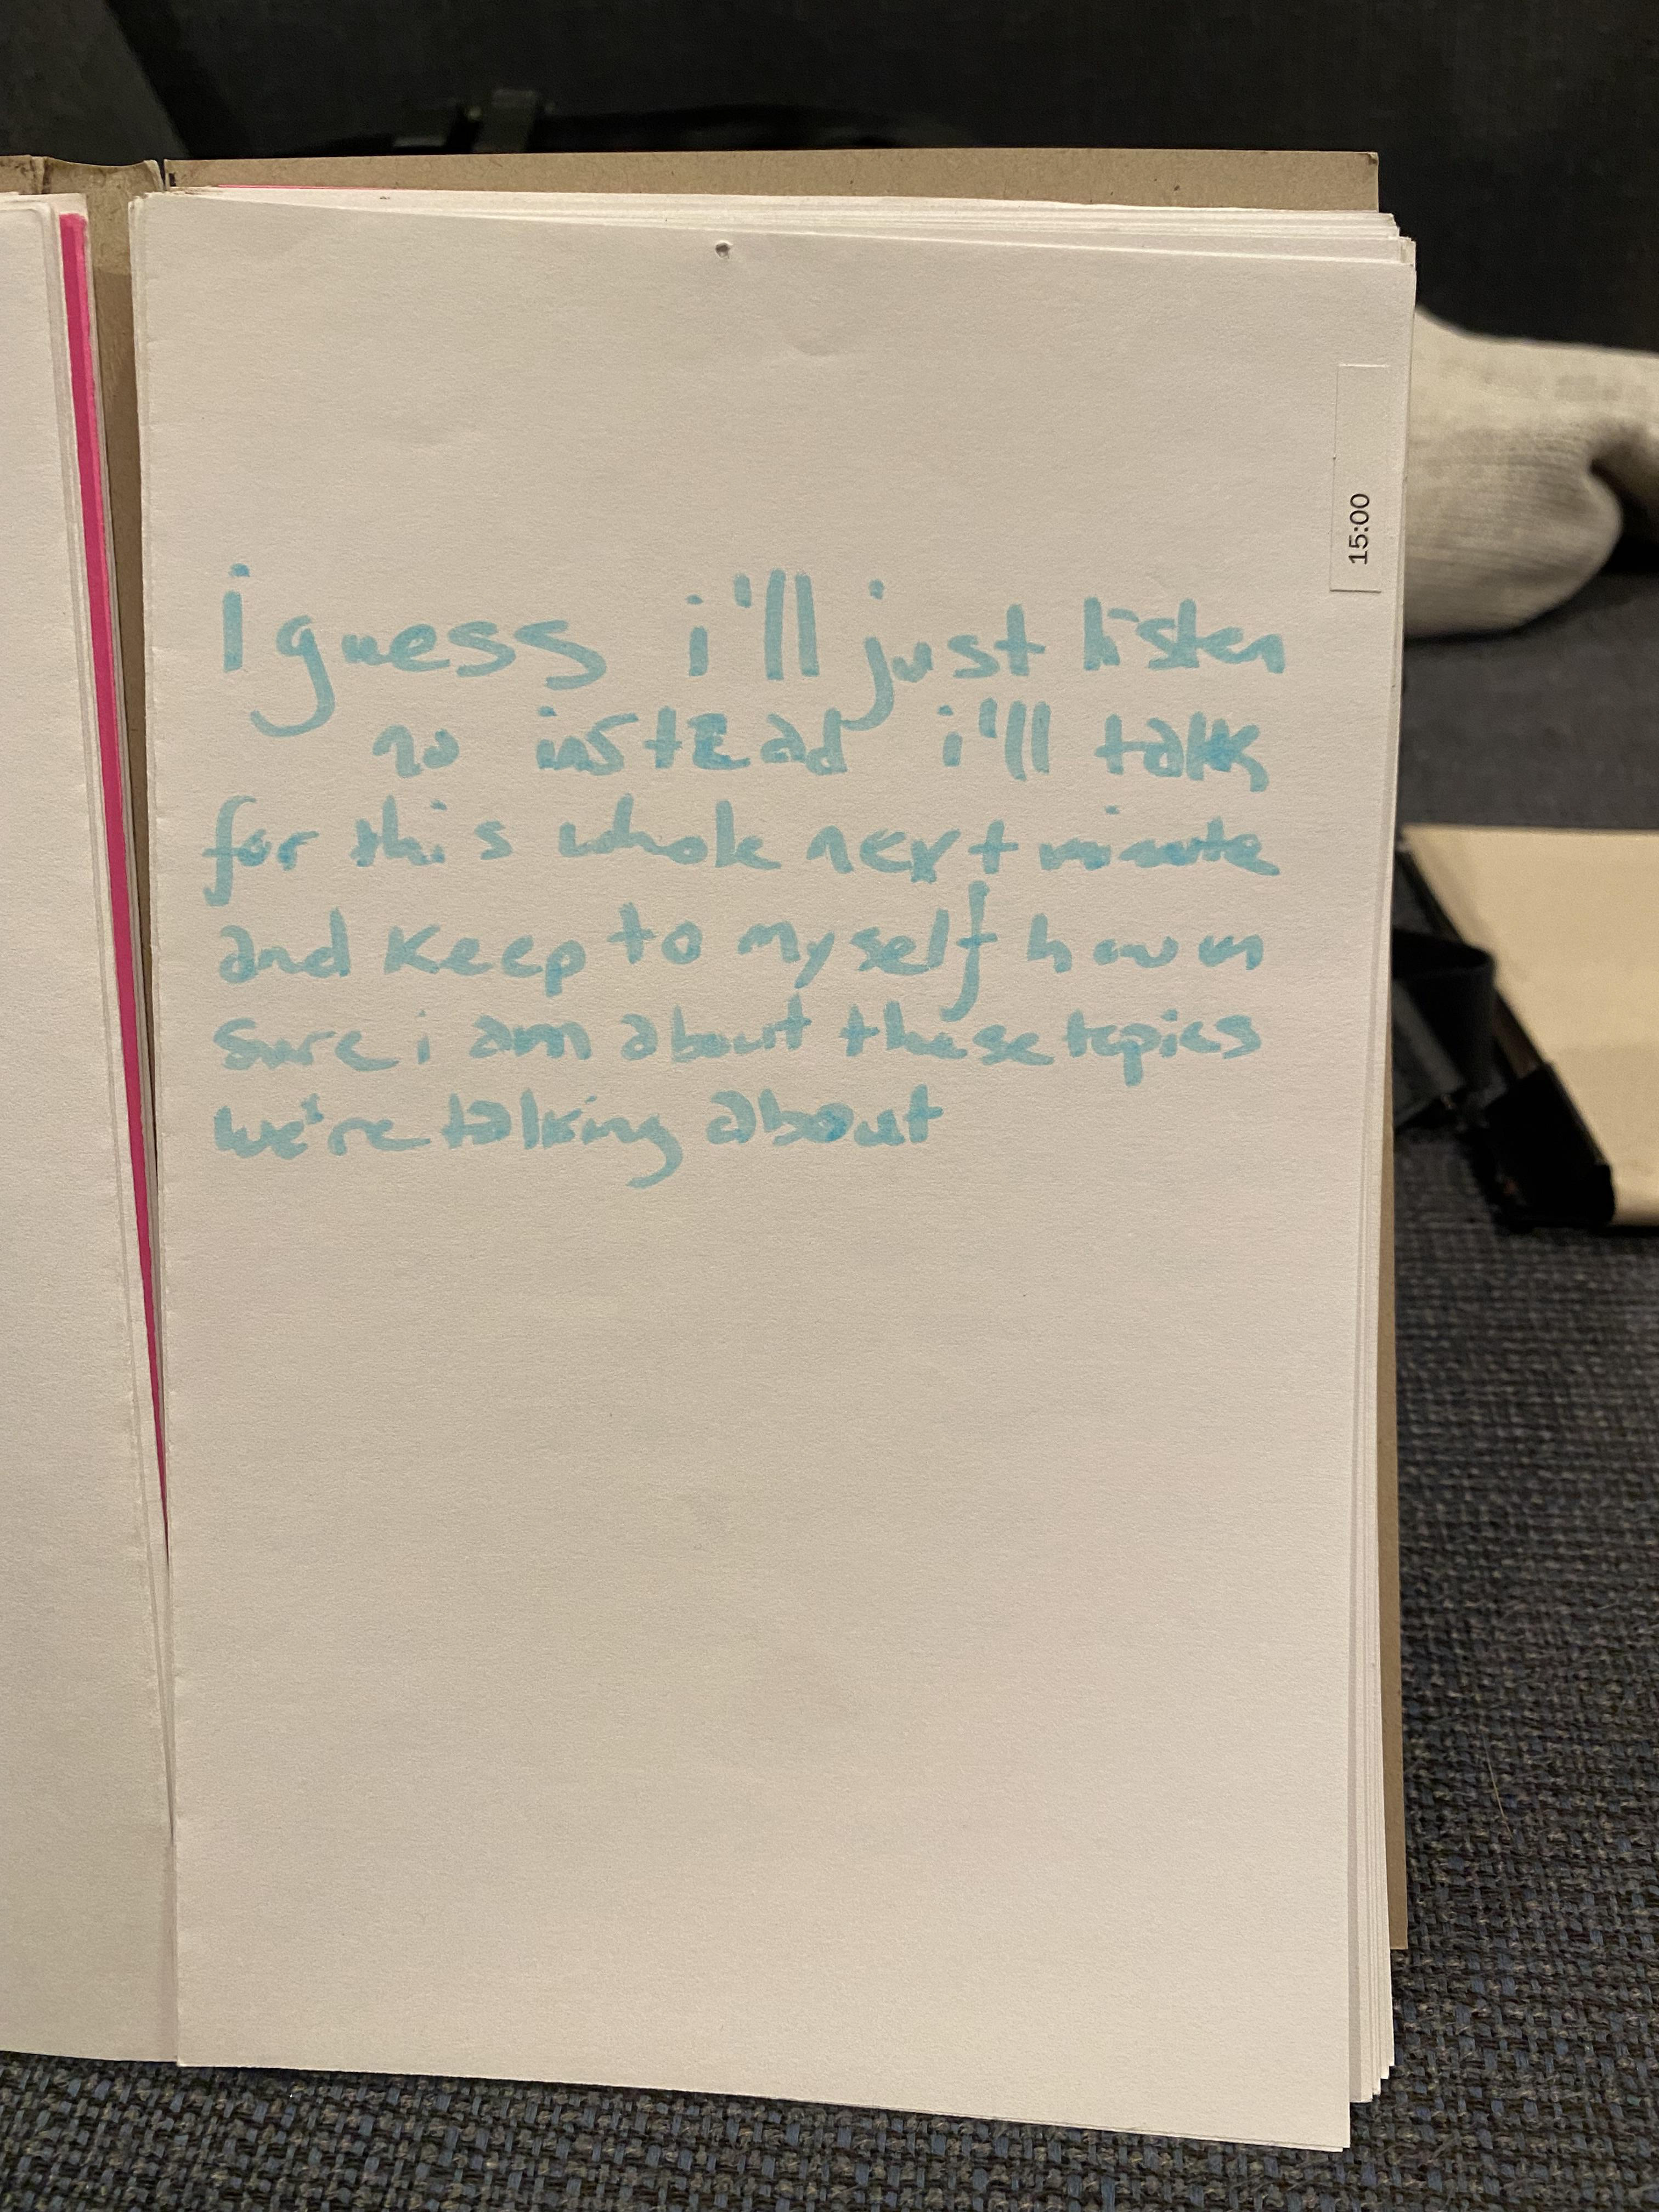 i guess i'll just listen
no instead i'll talk
for this whole next minute
and keep to myself how un
sure i am about these topics
we're talking about
15:00